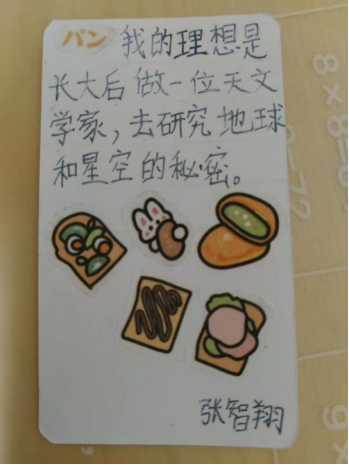 パン 我的理想是
长大后做一位天文
学家，去研究地球
和星空的秘密。
张智翔
8×8=6